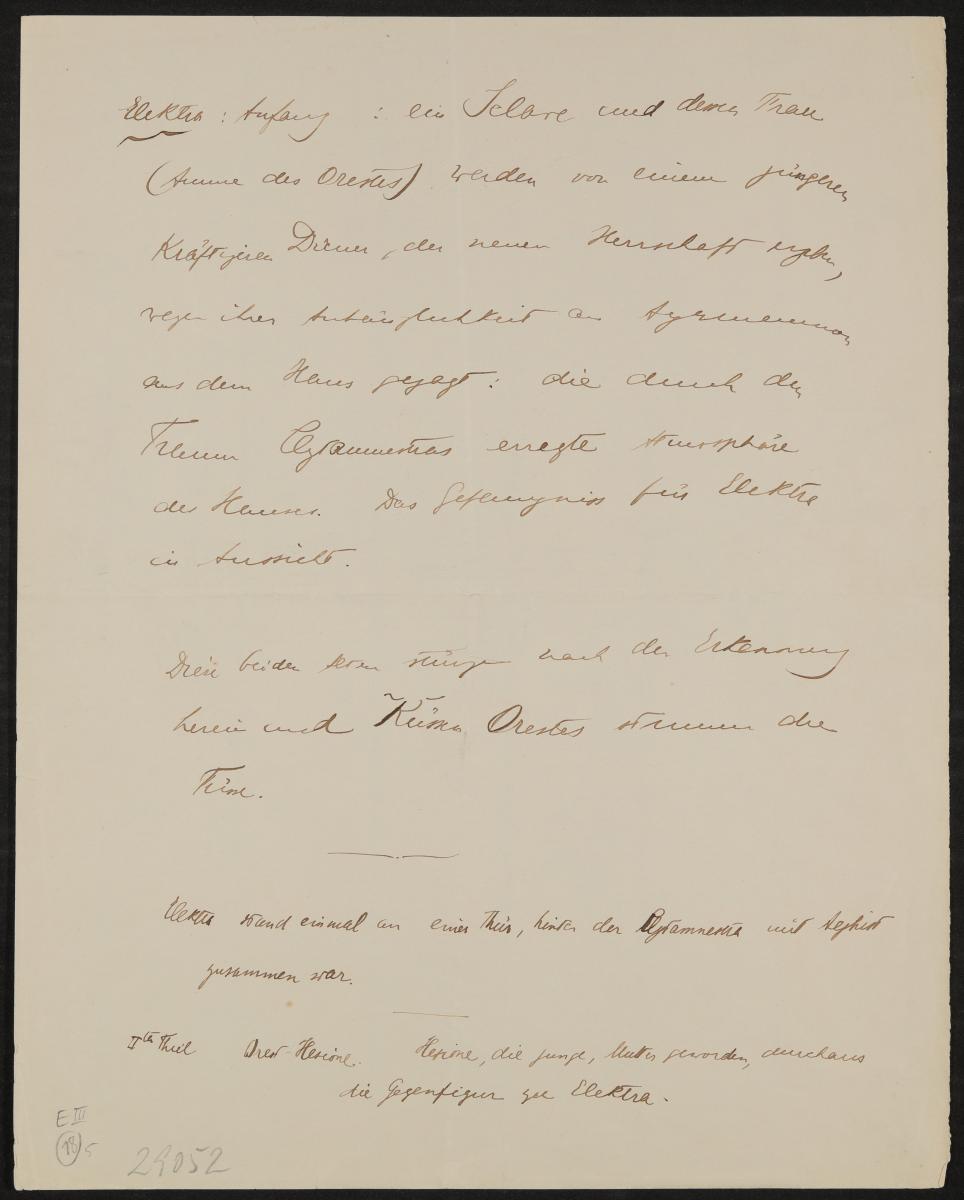 Elektra : Anfang : ein Sclave und dessen Frau
(Amme des Orestes) werden von einem jüngeren
Kräftigeren Diener, der neuen Herrschaft ergeben,
wegen ihrer Anhänglichkeit an Agamemnon
aus dem Haus gejagt: die durch den
Traum Clytämnestras erregte Atmosphäre
des Hauses. Das Gefängniss für Elektra
in Aussicht.
Diese beiden stürzen nach der Erkennung
herein und Küssen Orestes stumm die
Füsse.
Elektra stand einmal an einer Thür, hinter der Clytämnestra mit Aegisth
zusammen war.
IIter Theil Orest-Hesione. Hesione, die junge, Mutter geworden, durchaus
die Gegenfigur zu Elektra.
E III
18 5
29052